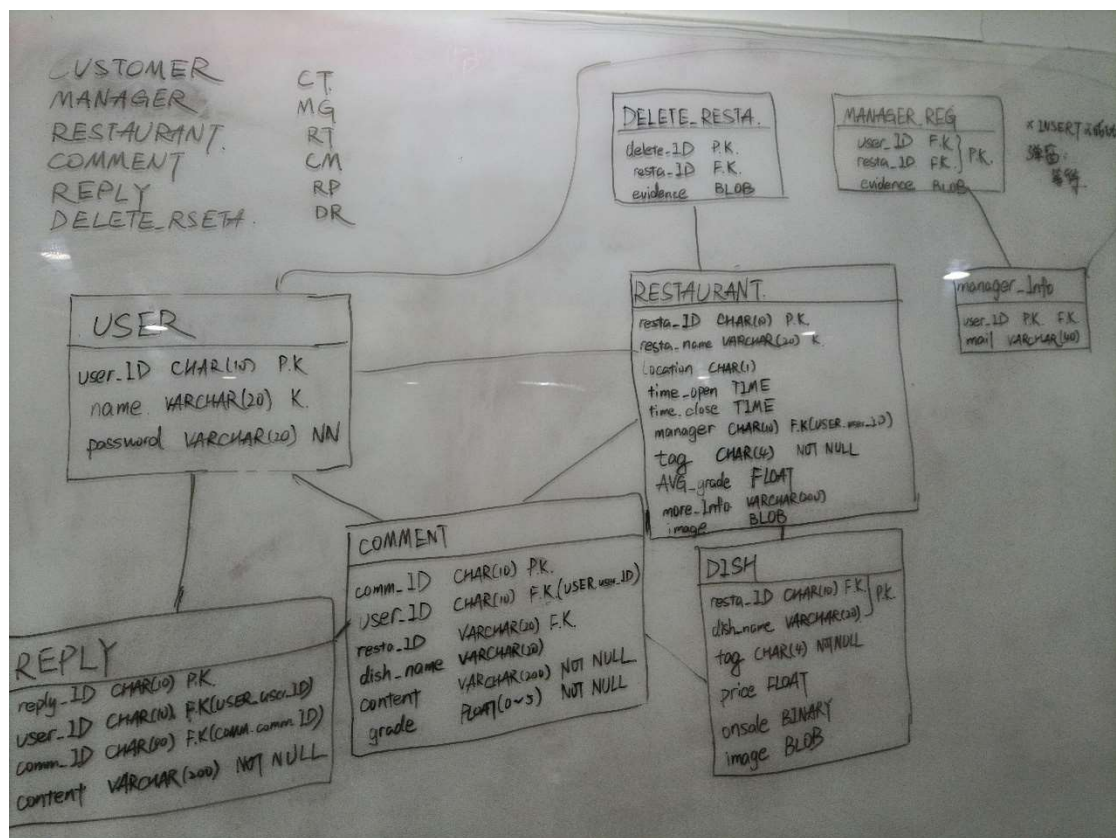 CUSTOMER CT.
MANAGER MG
RESTAURANT. RT
COMMENT CM
REPLY RP
DELETE_RSETA. DR
DELETE_RESTA.
delete_ID P.K.
resta_ID F.K.
evidence BLOB
MANAGER_REG
user_ID F.K } P.K.
resta_ID F.K.
evidence BLOB
* INSERT
manager_Info
user_ID P.K. F.K.
mail VARCHAR(40)
USER
user_ID CHAR(10) P.K
name VARCHAR(20) K.
password VARCHAR(20) NN
RESTAURANT.
resta_ID CHAR(10) P.K.
resta_name VARCHAR(20) K.
Location CHAR(1)
time_open TIME
time_close TIME
manager CHAR(10) F.K(USER.user_ID)
tag CHAR(4) NOT NULL
AVG_grade FLOAT
more_Info VARCHAR(200)
image BLOB
COMMENT
comm_ID CHAR(10) P.K.
user_ID CHAR(10) F.K.(USER.user_ID)
resta_ID VARCHAR(20) F.K.
dish_name VARCHAR(20)
content VARCHAR(200) NOT NULL
grade FLOAT(0~5) NOT NULL
DISH
resta_ID CHAR(10) F.K } P.K.
dish_name VARCHAR(20)
tag CHAR(4) NOT NULL
price FLOAT
onsale BINARY
image BLOB
REPLY
reply_ID CHAR(10) P.K
user_ID CHAR(10) F.K(USER.user_ID)
comm_ID CHAR(10) F.K(comm.comm_ID)
content VARCHAR(200) NOT NULL